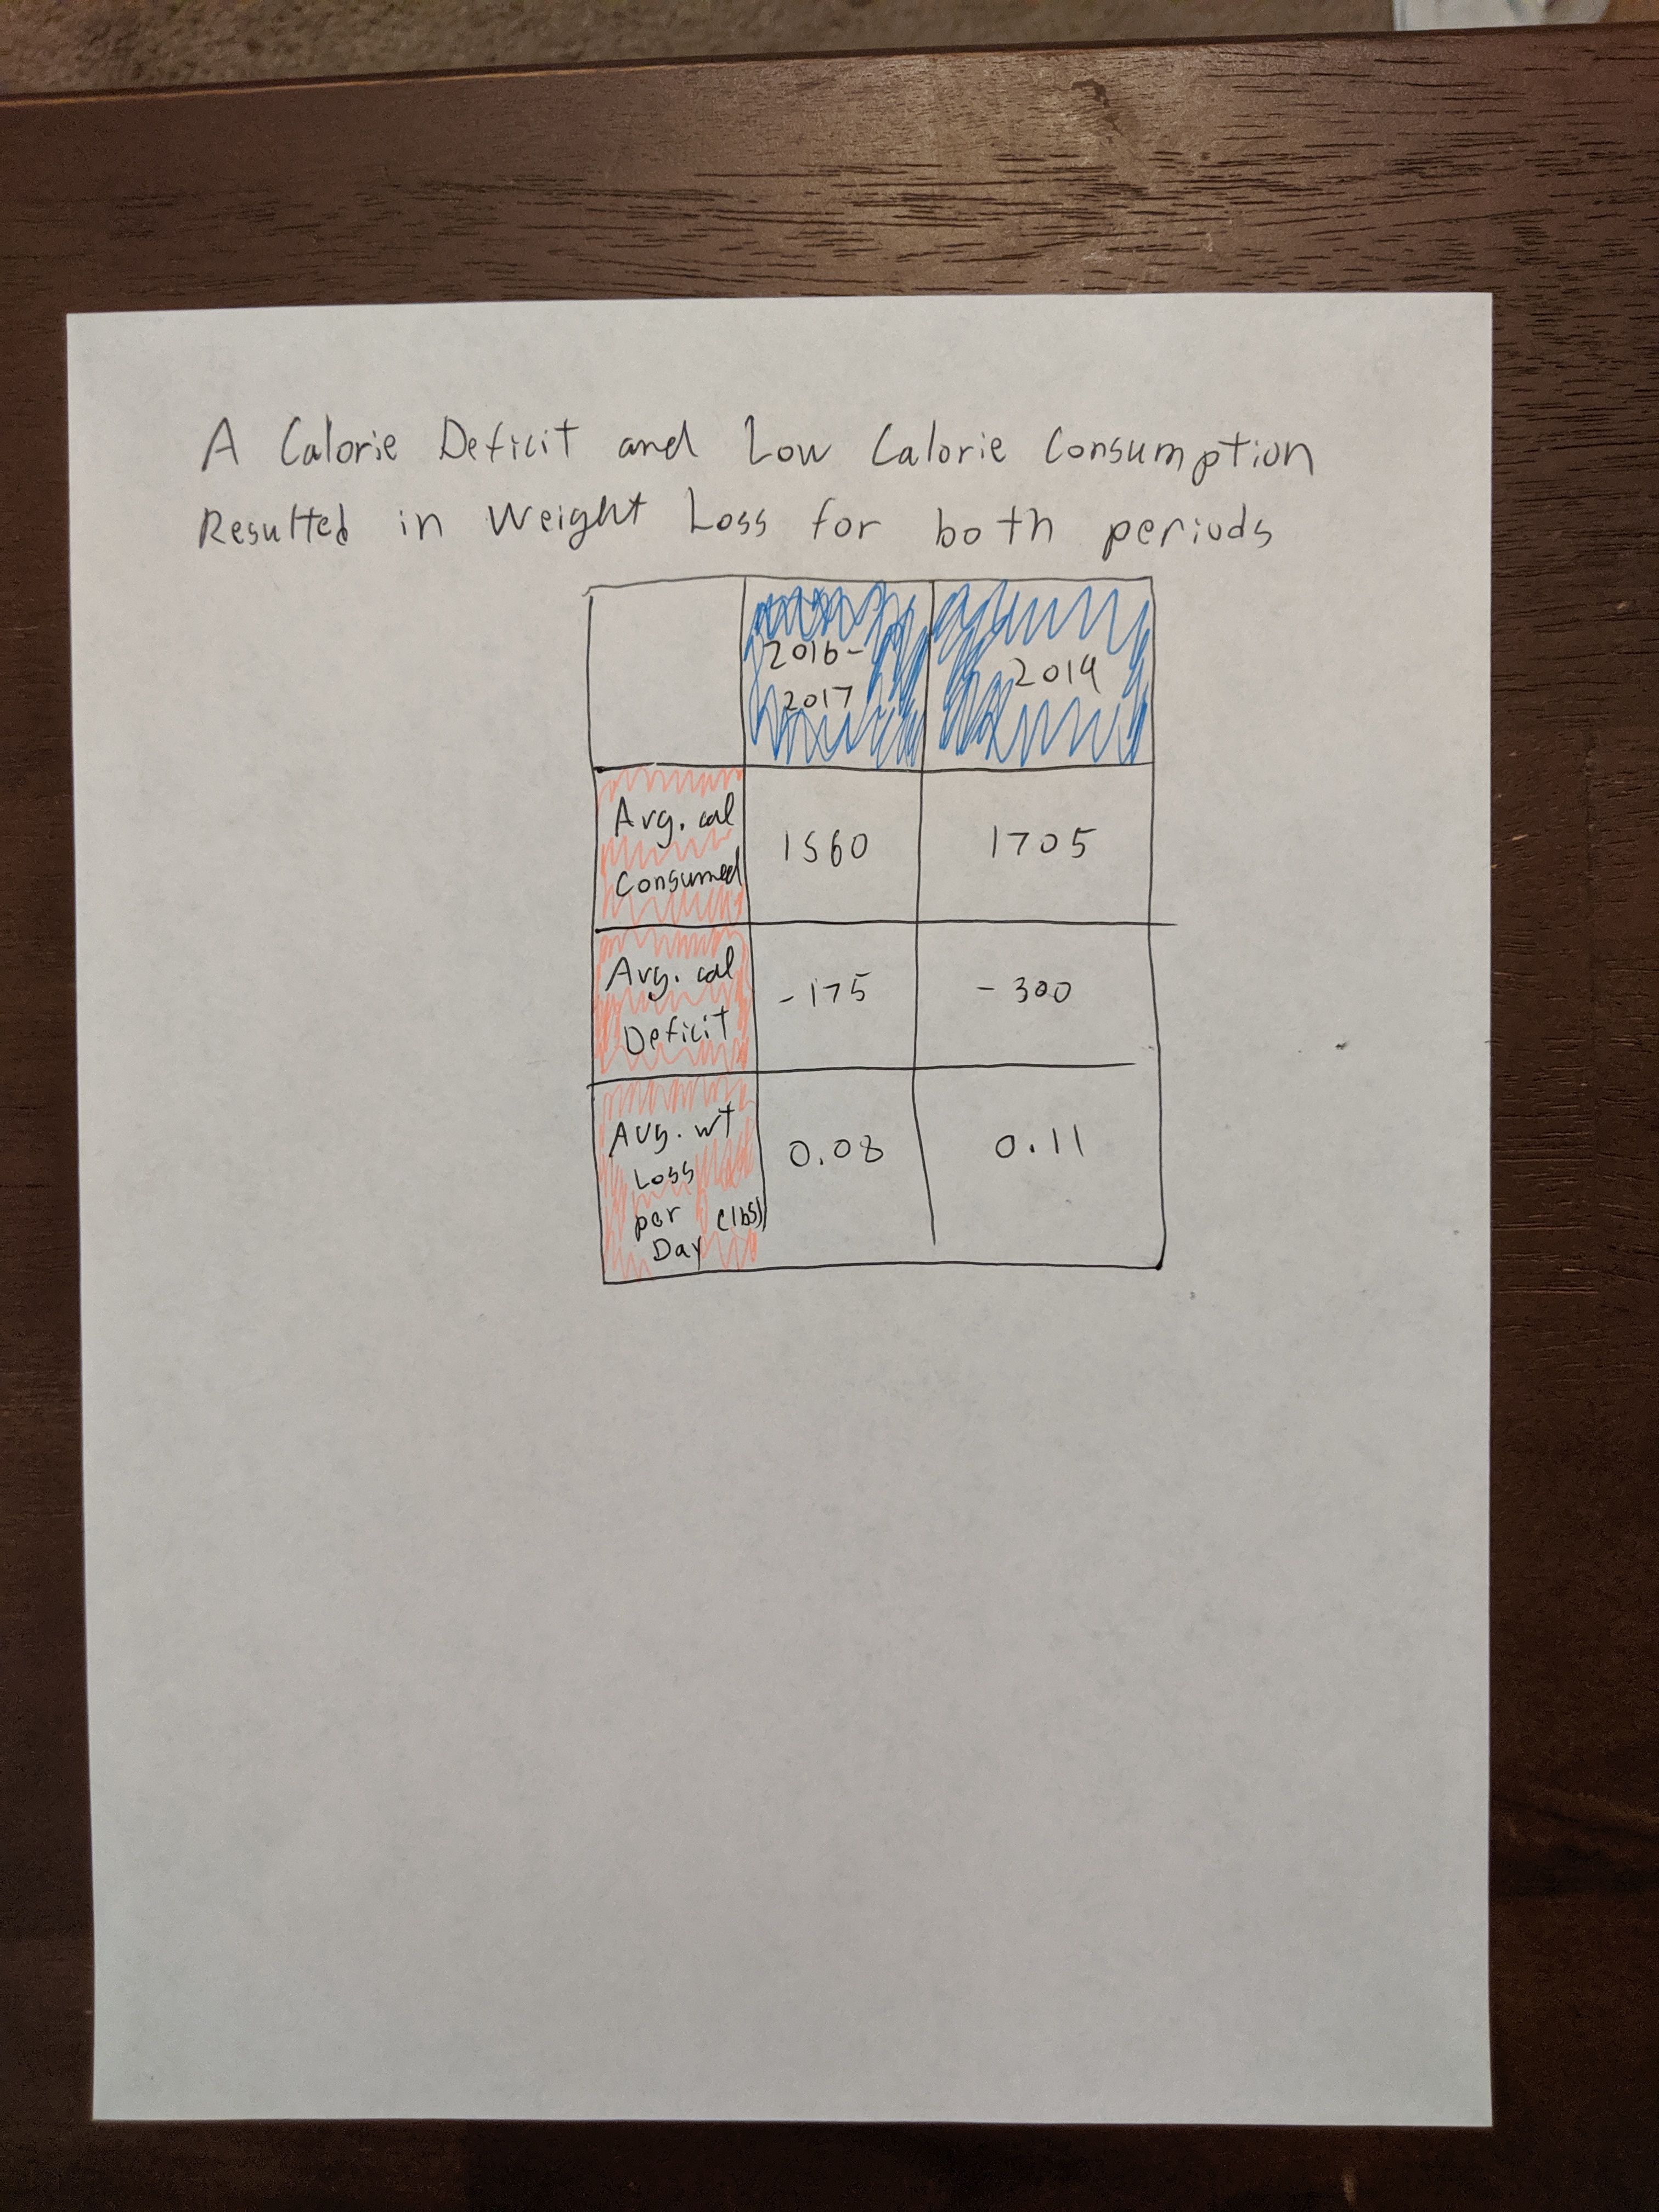 A Calorie Deficit and Low Calorie Consumption
Resulted in Weight Loss for both periods
2016-
2017
2019
Avg. cal
Consumed
1560
1705
Avg. cal
Deficit
-175
-300
Avg. wt
Loss
per (lbs)
Day
0.08
0.11